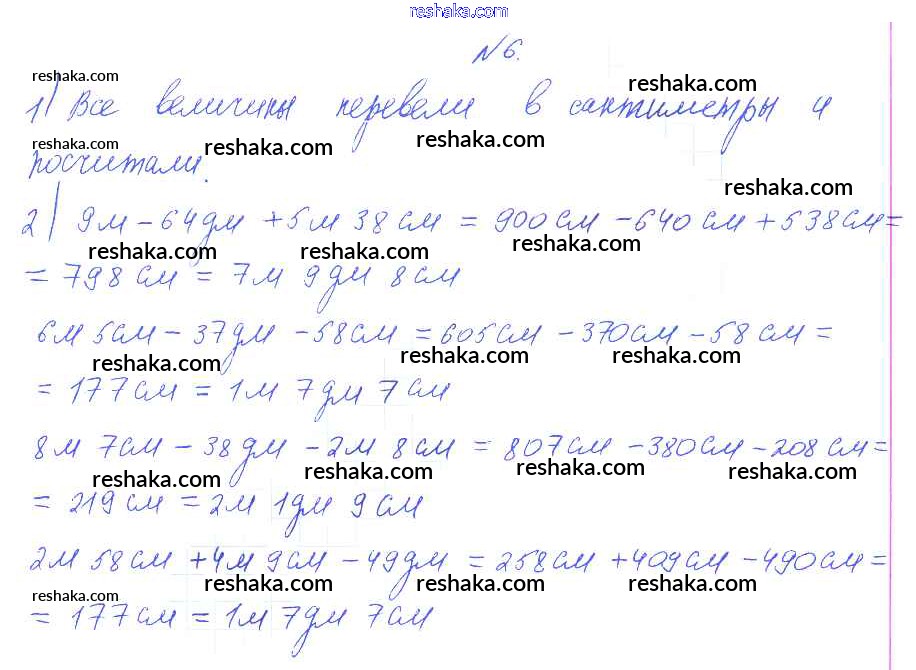 reshaka.com
№6.
reshaka.com reshaka.com
1) Все величины перевели в сантиметры и
reshaka.com reshaka.com reshaka.com
посчитали.
reshaka.com
2) 9м - 64дм + 5м 38см = 900см - 640см + 538см =
reshaka.com reshaka.com reshaka.com
= 798см = 7м 9дм 8см
6м 5см - 37дм - 58см = 605см - 370см - 58см =
reshaka.com reshaka.com reshaka.com
= 177см = 1м 7дм 7см
8м 7см - 38дм - 2м 8см = 807см - 380см - 208см =
reshaka.com reshaka.com reshaka.com reshaka.com
= 219см = 2м 1дм 9см
2м 58см + 4м 9см - 49дм = 258см + 409см - 490см =
reshaka.com reshaka.com reshaka.com reshaka.com
= 177см = 1м 7дм 7см